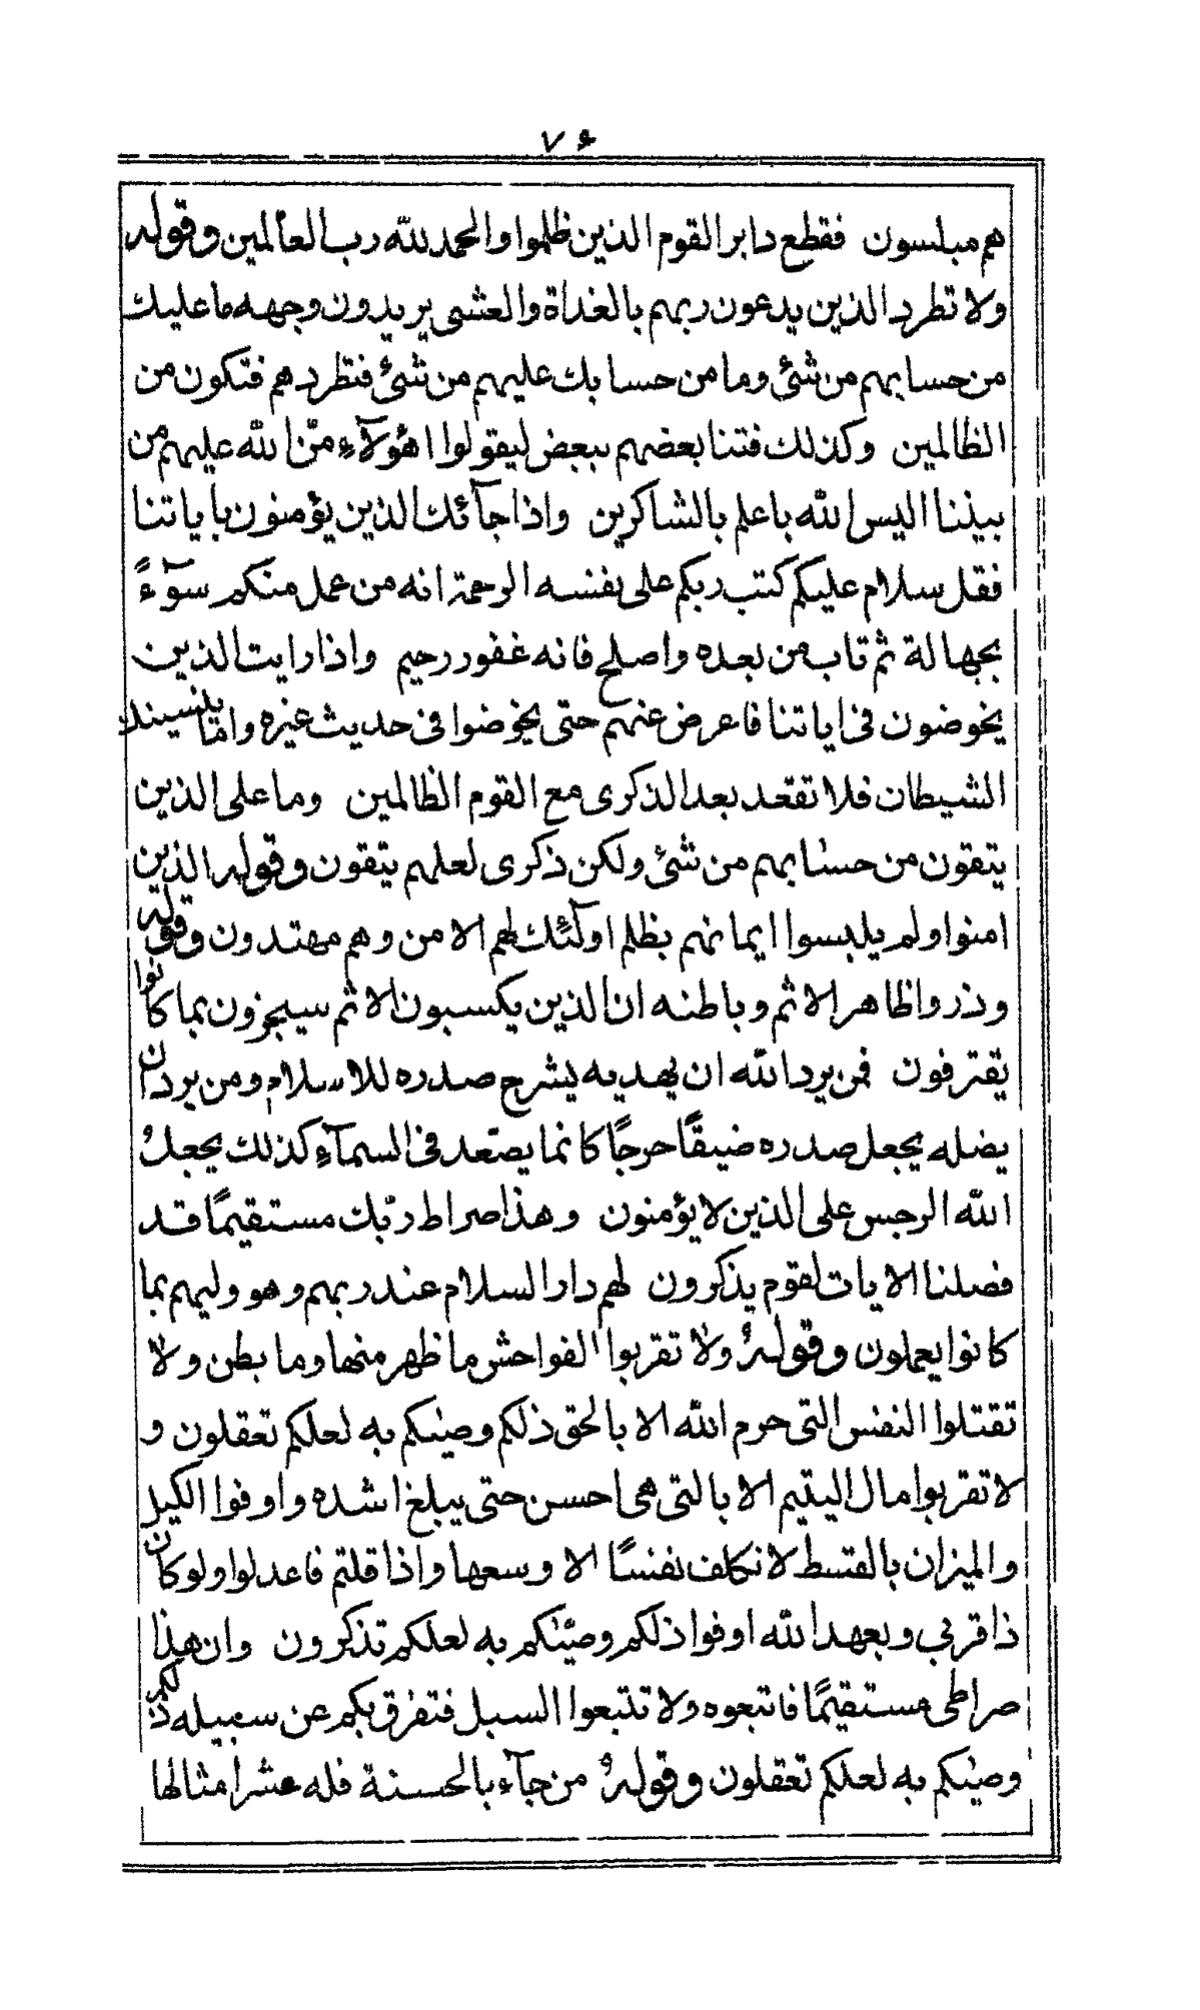 ٧۶
هم مبلسون فقطع دابر القوم الذين ظلموا والحمد لله رب العالمين وقوله
ولا تطرد الذين يدعون ربهم بالغداة والعشى يريدون وجهه ما عليك
من حسابهم من شئ وما من حسابك عليهم من شئ فتطردهم فتكون من
الظالمين وكذلك فتنا بعضهم ببعض ليقولوا اهؤلآء منّ الله عليهم من
بيننا اليس الله باعلم بالشاكرين واذا جآئك الذين يؤمنون باياتنا
فقل سلام عليكم كتب ربكم على نفسه الرحمة انه من عمل منكم سوٓءً
بجهالة ثم تاب من بعده واصلح فانه غفور رحيم واذا رايت الذين
يخوضون فى اياتنا فاعرض عنهم حتى يخوضوا فى حديث غيره وامّا ينسينك
الشيطان فلا تقعد بعد الذكرى مع القوم الظالمين وما على الذين
يتقون من حسابهم من شئ ولكن ذكرى لعلهم يتقون وقوله الذين
امنوا ولم يلبسوا ايمانهم بظلم اولٓئك لهم الامن وهم مهتدون وقوله
وذروا ظاهر الاثم وباطنه ان الذين يكسبون الاثم سيجزون بما كانوا
يقترفون فمن يرد الله ان يهديه يشرح صدره للاسلام ومن يرد ان
يضله يجعل صدره ضيقًا حرجًا كانما يصّعد فى السمآءِ كذلك يجعلُ
الله الرجس على الذين لا يؤمنون وهذا صراط ربّك مستقيمًا قد
فصلنا الايات لقوم يذكرون لهم دار السلام عند ربهم وهو وليهم بما
كانوا يعملون وقولهُ ولا تقربوا الفواحش ما ظهر منها وما بطن ولا
تقتلوا النفس التى حرم الله الا بالحق ذلكم وصيٰكم به لعلكم تعقلون و
لا تقربوا مال اليتيم الا بالتى هى احسن حتى يبلغ اشده واوفوا الكيل
والميزان بالقسط لا نكلف نفسًا الا وسعها واذا قلتم فاعدلوا ولو كان
ذا قربى وبعهد الله اوفوا ذلكم وصّيٰكم به لعلكم تذكرون وان هذا
صراطى مستقيمًا فاتبعوه ولا تتبعوا السبل فتفرق بكم عن سبيله ذلكم
وصيٰكم به لعلكم تعقلون وقولهُ من جآء بالحسنة فله عشر امثالها